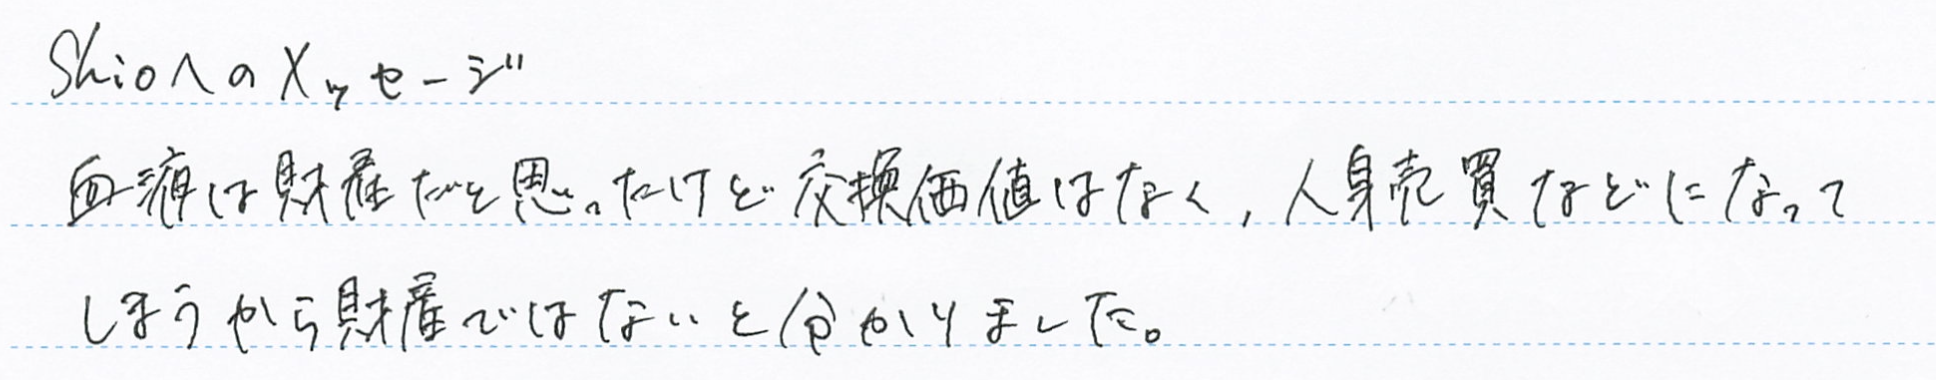 Shioへのメッセージ
血液は財産だと思ったけど交換価値はなく,人身売買などになって
しまうから財産ではないと分かりました。